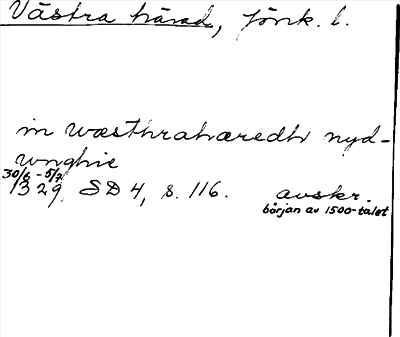 Västra härad, Jönk. l.
in wæsthrahæredh nyd-
wnghie
30/6 - 5/7
1329, SD 4, s. 116. avskr.
början av 1500-talet